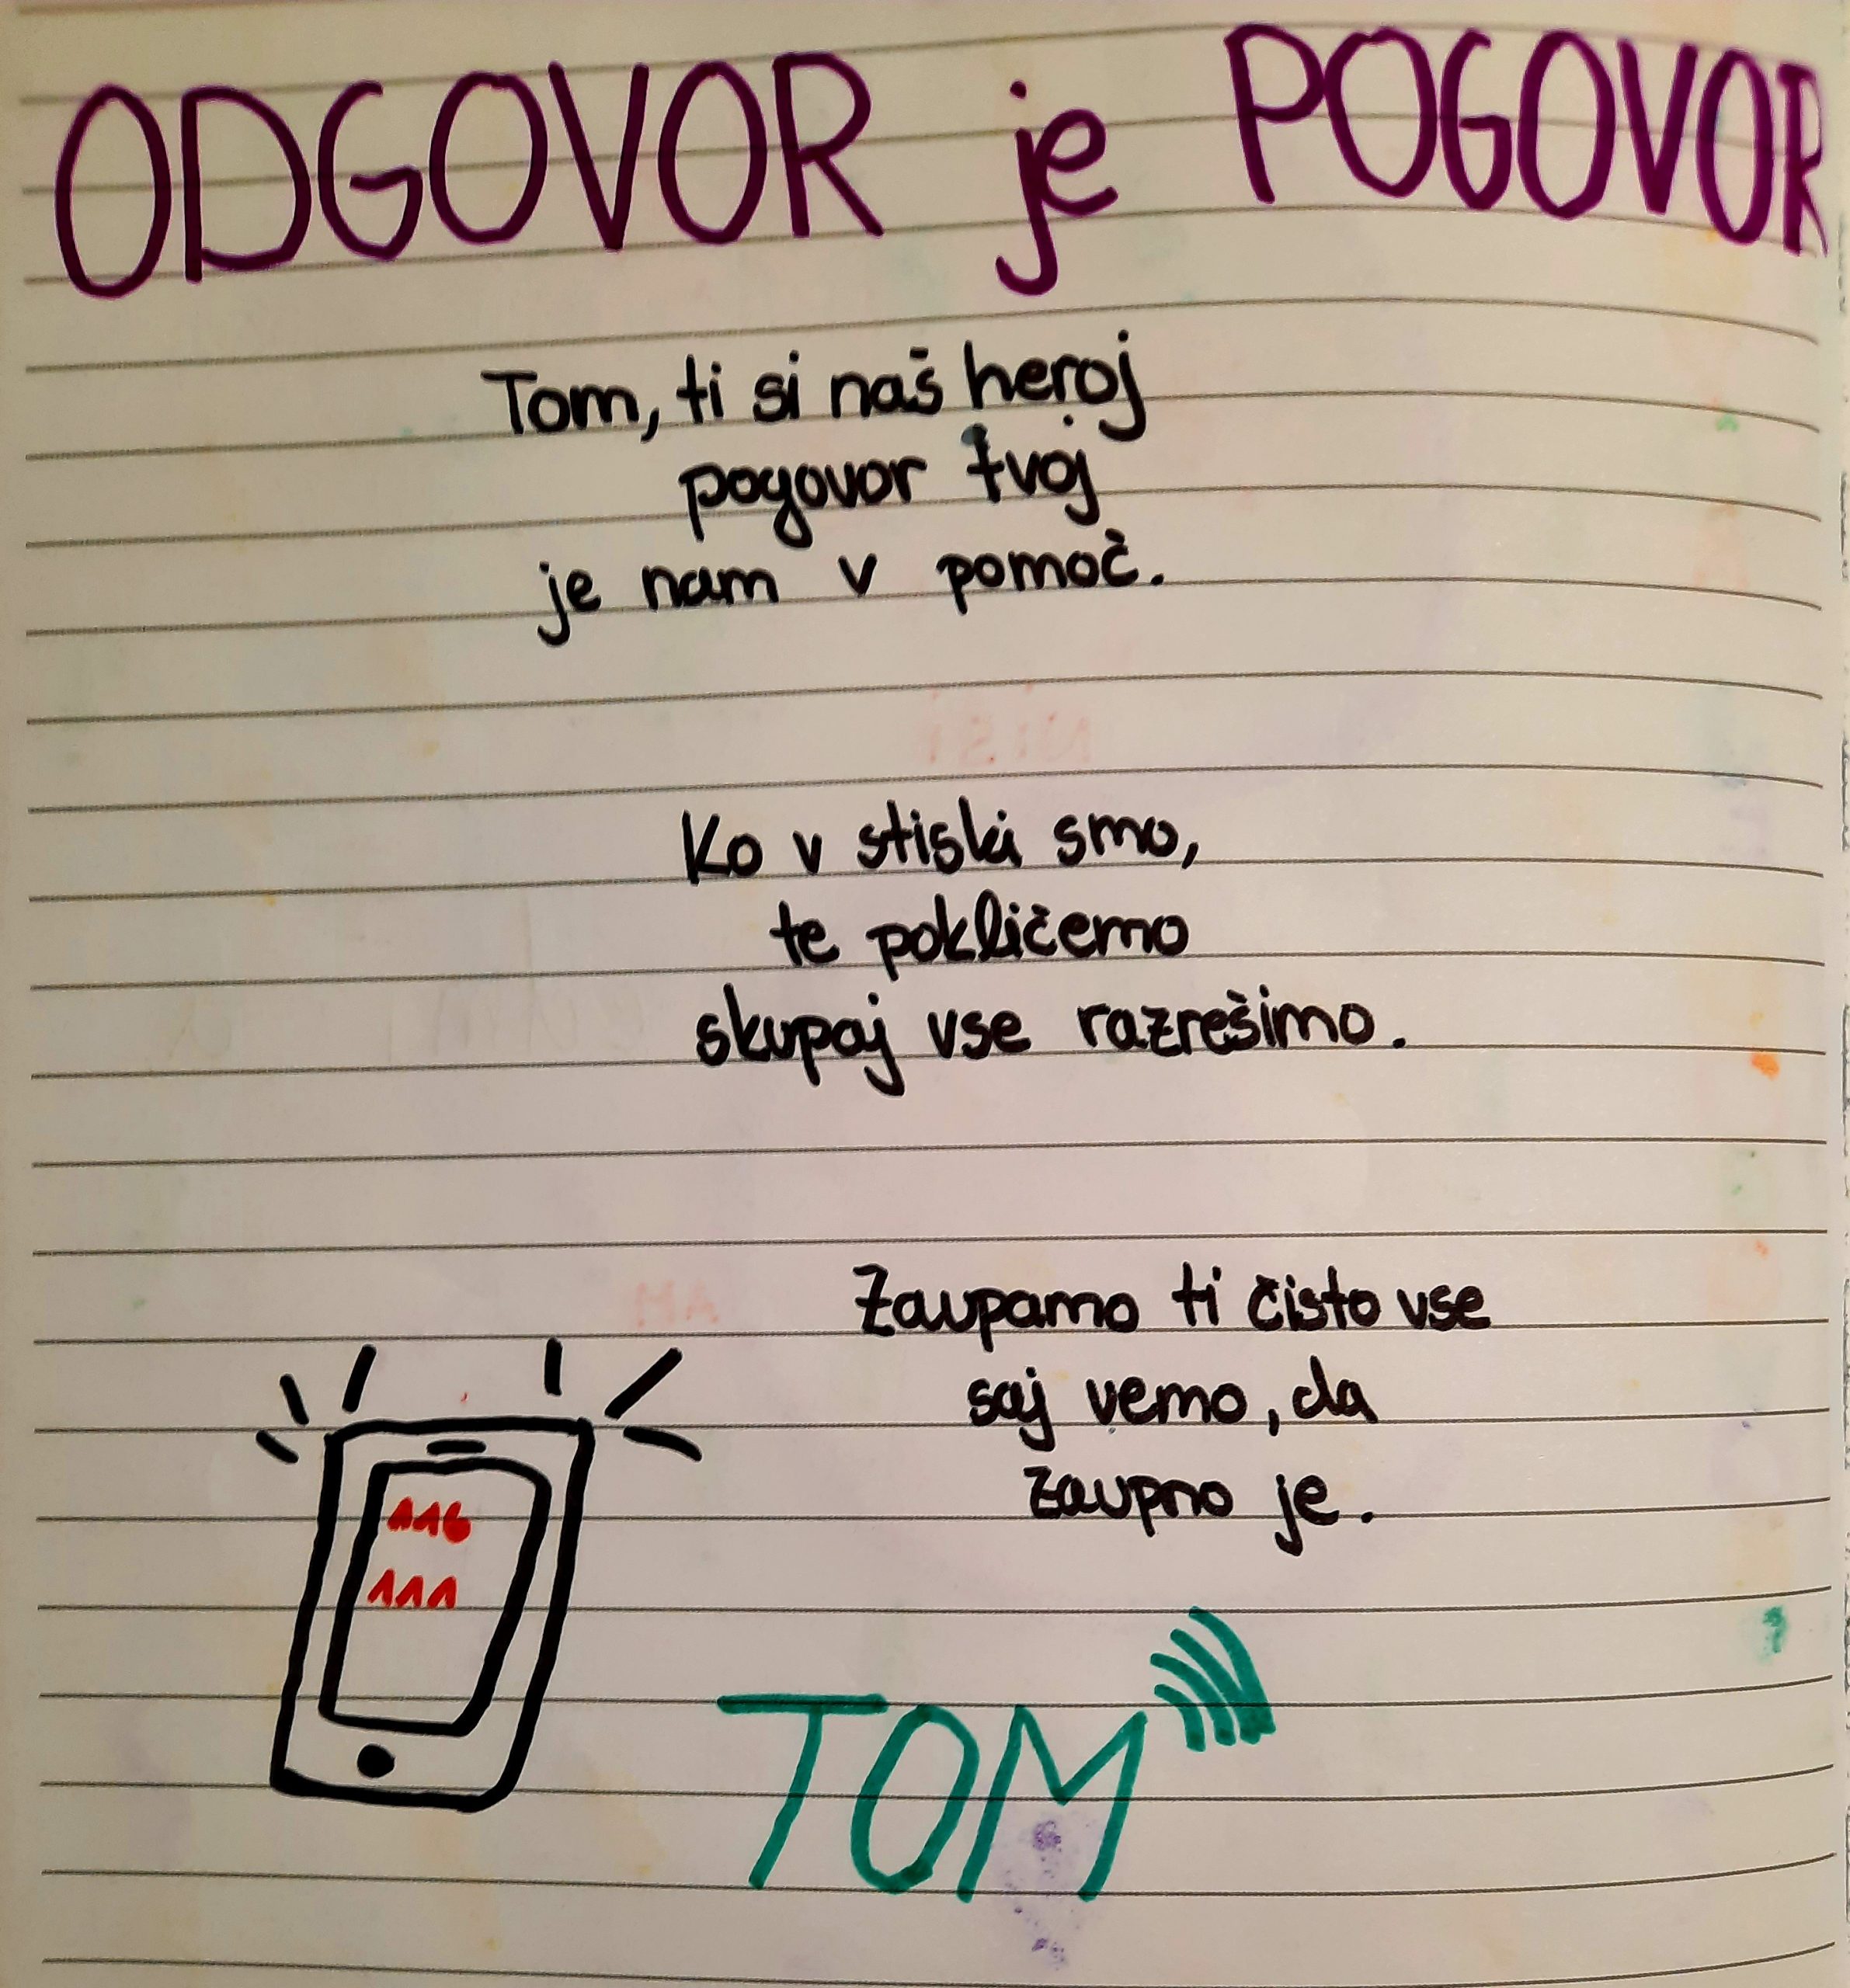 ODGOVOR je POGOVOR
Tom, ti si naš heroj
pogovor tvoj
je nam v pomoč.
Ko v stiski smo,
te pokličemo
skupaj vse razrešimo.
Zaupamo ti čisto vse
saj vemo, da
zaupno je.
116
111
TOM